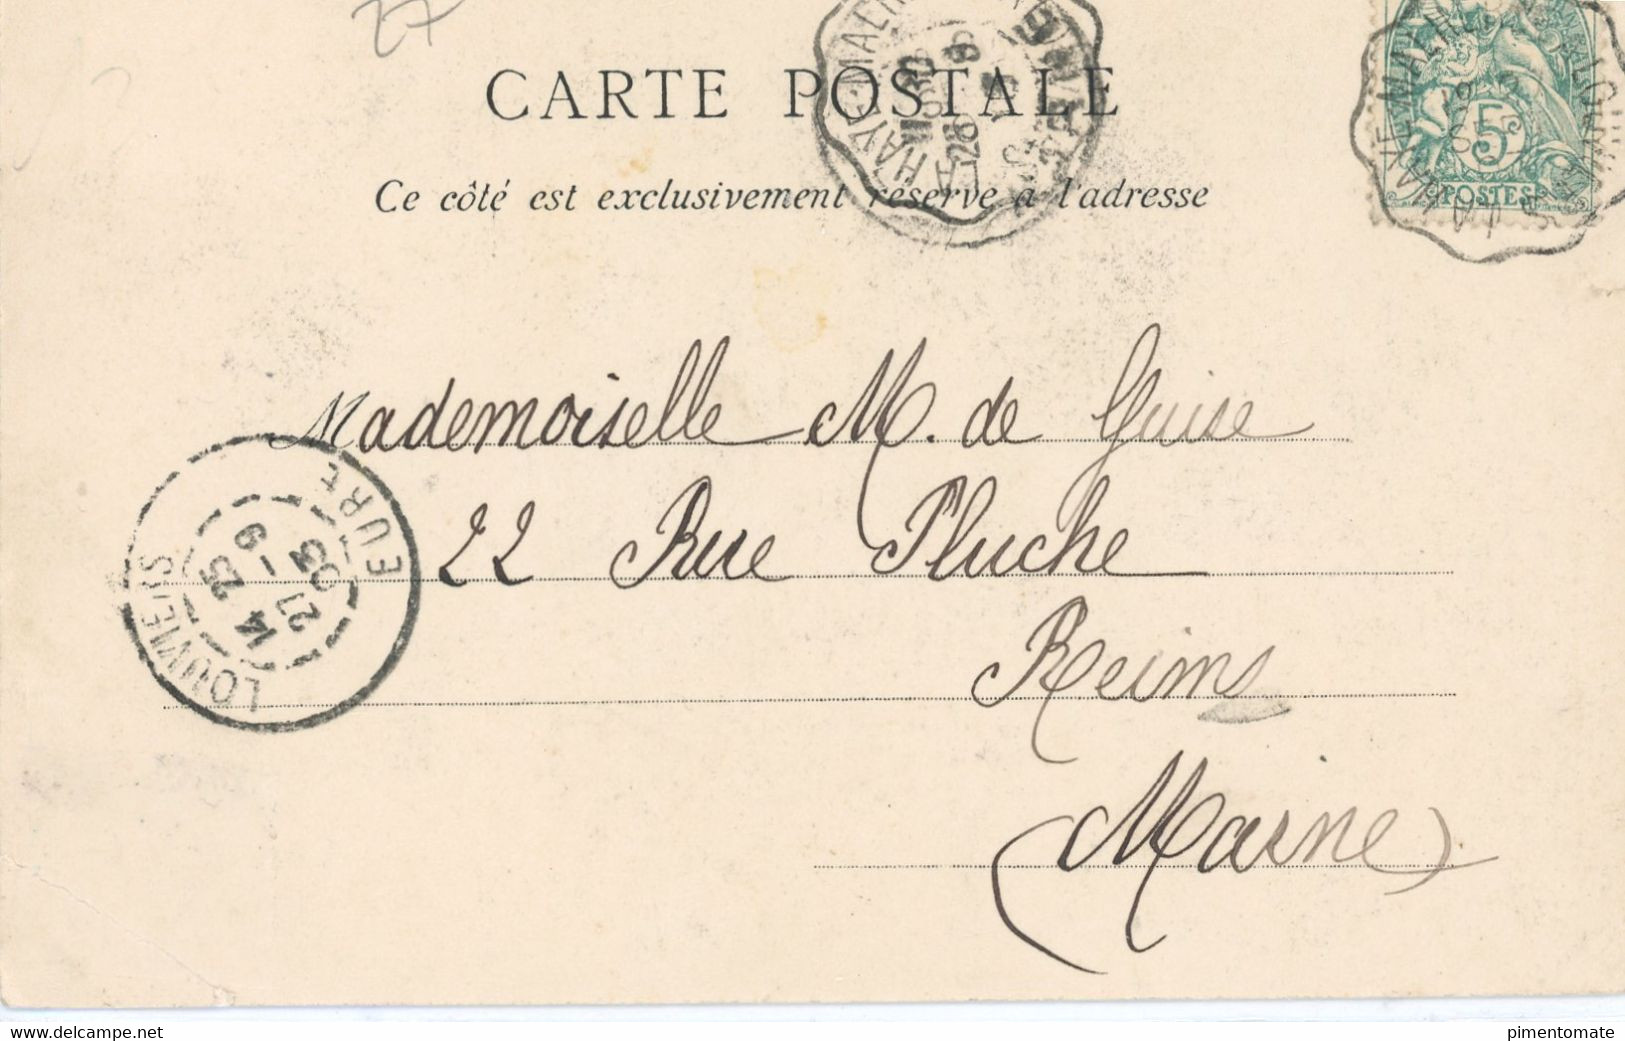 27
CARTE POSTALE
Ce côté est exclusivement réservé à l'adresse
5
POSTES
LA HAYE-MALHERBE
26
Mademoiselle M. de Guise
22 Rue Pluche
Reims
(Marne)
LOUVIERS
14 25
27 - 9
03
EURE
www.delcampe.net
pimentomate